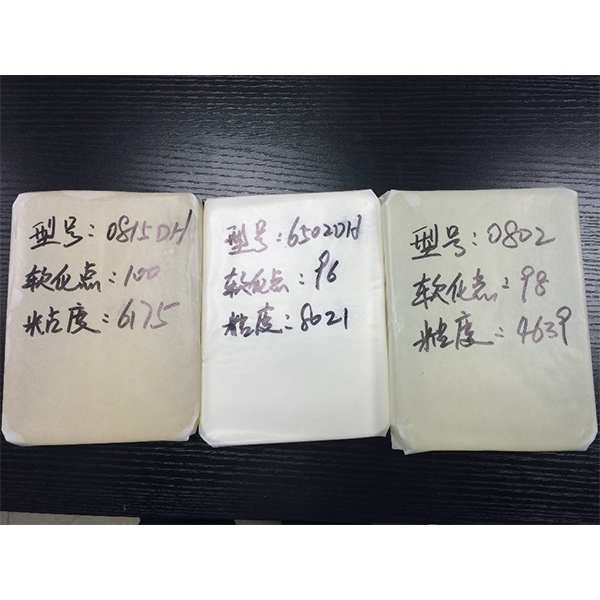 型号：0815DH
软化点：100
粘度：6175
型号：6502DH
软化点：96
粘度：8021
型号：0802
软化点：98
粘度：4639